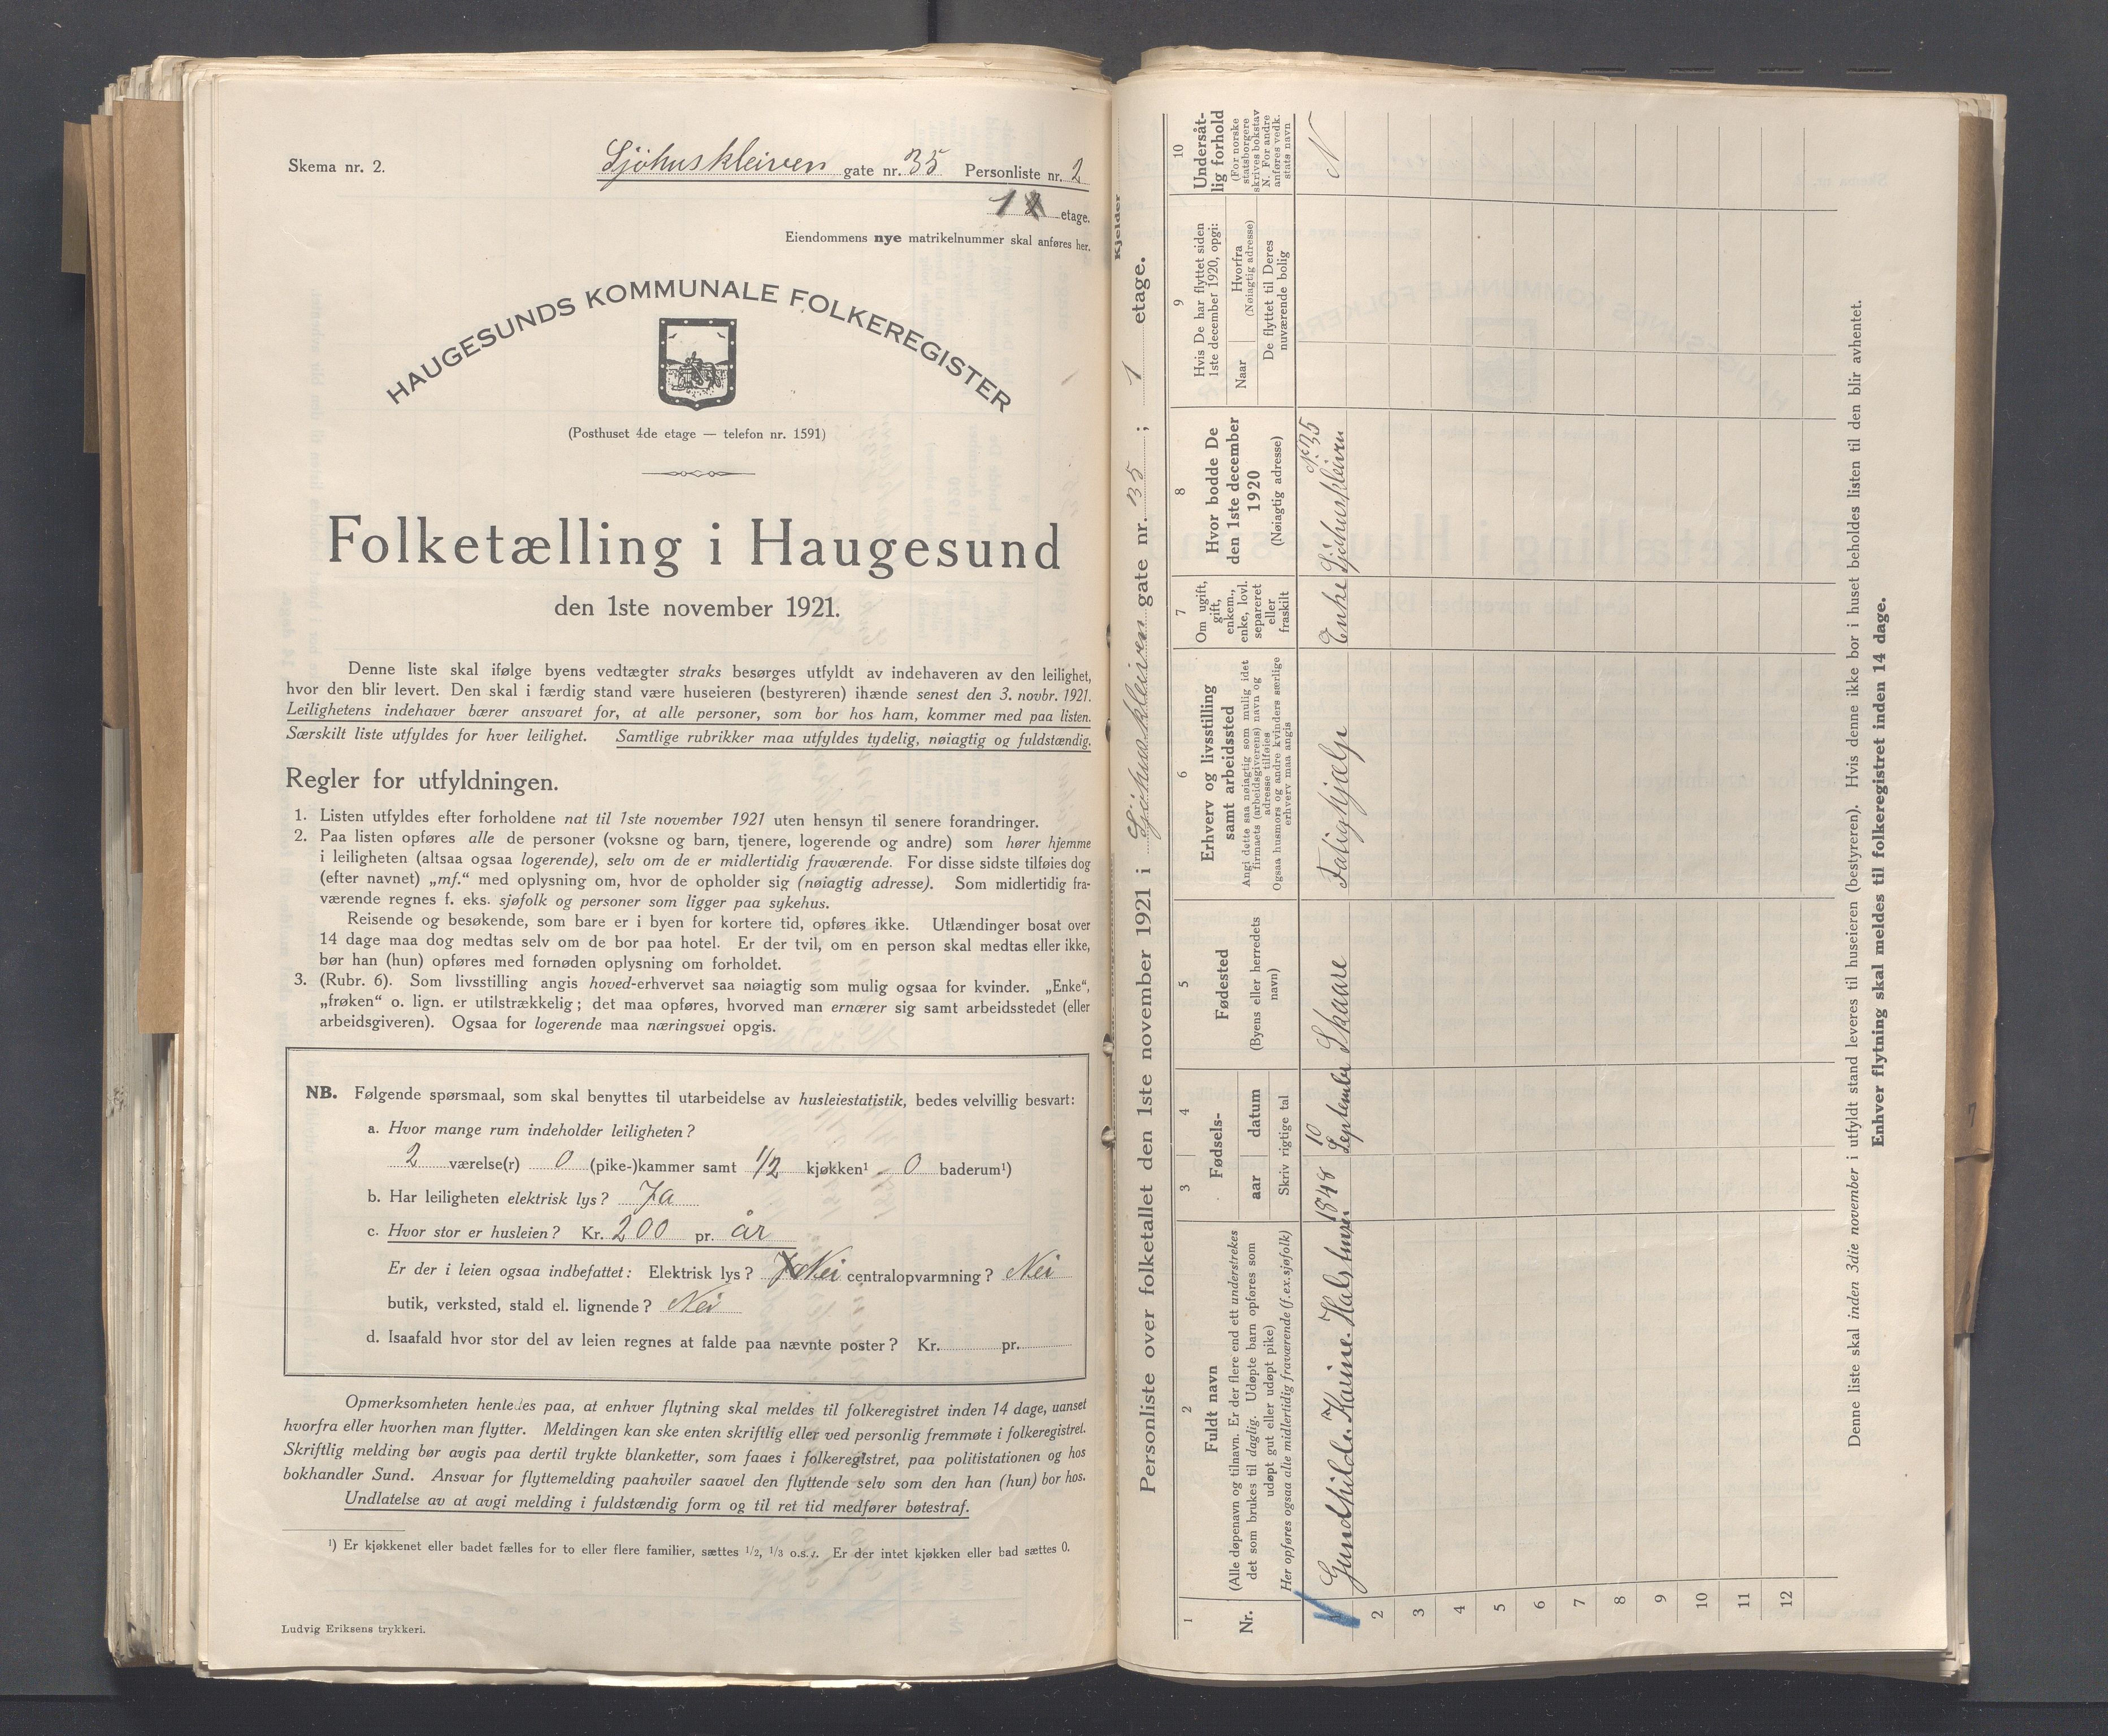 Skema nr. 2.
Sjöhuskleiven gate nr. 35 Personliste nr. 2
1 etage.
Eiendommens nye matrikelnummer skal anføres her.
HAUGESUNDS KOMMUNALE FOLKEREGISTER
(Posthuset 4de etage — telefon nr. 1591)
Folketælling i Haugesund
den 1ste november 1921.
Denne liste skal ifølge byens vedtægter straks besørges utfyldt av indehaveren av den leilighet,
hvor den blir levert. Den skal i færdig stand være huseieren (bestyreren) ihænde senest den 3. novbr. 1921.
Leilighetens indehaver bærer ansvaret for, at alle personer, som bor hos ham, kommer med paa listen.
Særskilt liste utfyldes for hver leilighet. Samtlige rubrikker maa utfyldes tydelig, nøiagtig og fuldstændig.
Regler for utfyldningen.
1. Listen utfyldes efter forholdene nat til 1ste november 1921 uten hensyn til senere forandringer.
2. Paa listen opføres alle de personer (voksne og barn, tjenere, logerende og andre) som hører hjemme
i leiligheten (altsaa ogsaa logerende), selv om de er midlertidig fraværende. For disse sidste tilføies dog
(efter navnet) „mf.“ med oplysning om, hvor de opholder sig (nøiagtig adresse). Som midlertidig fra-
værende regnes f. eks. sjøfolk og personer som ligger paa sykehus.
Reisende og besøkende, som bare er i byen for kortere tid, opføres ikke. Utlændinger bosat over
14 dage maa dog medtas selv om de bor paa hotel. Er der tvil, om en person skal medtas eller ikke,
bør han (hun) opføres med fornøden oplysning om forholdet.
3. (Rubr. 6). Som livsstilling angis hoved-erhvervet saa nøiagtig som mulig ogsaa for kvinder. „Enke“,
„frøken“ o. lign. er utilstrækkelig; det maa opføres, hvorved man ernærer sig samt arbeidsstedet (eller
arbeidsgiveren). Ogsaa for logerende maa næringsvei opgis.
NB. Følgende spørsmaal, som skal benyttes til utarbeidelse av husleiestatistik, bedes velvillig besvart:
a. Hvor mange rum indeholder leiligheten?
2 værelse(r) 0 (pike-)kammer samt 1/2 kjøkken¹ 0 baderum¹)
b. Har leiligheten elektrisk lys? Ja
c. Hvor stor er husleien? Kr. 200 pr. år
Er der i leien ogsaa indbefattet: Elektrisk lys? Nei centralopvarmning? Nei
butik, verksted, stald el. lignende? Nei
d. Isaafald hvor stor del av leien regnes at falde paa nævnte poster? Kr. pr.
Opmerksomheten henledes paa, at enhver flytning skal meldes til folkeregistret inden 14 dage, uanset
hvorfra eller hvorhen man flytter. Meldingen kan ske enten skriftlig eller ved personlig fremmøte i folkeregistret.
Skriftlig melding bør avgis paa dertil trykte blanketter, som faaes i folkeregistret, paa politistationen og hos
bokhandler Sund. Ansvar for flyttemelding paahviler saavel den flyttende selv som den han (hun) bor hos.
Undlatelse av at avgi melding i fuldstændig form og til ret tid medfører bøtestraf.
¹) Er kjøkkenet eller badet fælles for to eller flere familier, sættes 1/2, 1/3 o.s.v. Er der intet kjøkken eller bad sættes 0.
Ludvig Eriksens trykkeri.
Kjelder
Personliste over folketallet den 1ste november 1921 i Sjöhuskleiven gate nr. 35; 1 etage.
1
Nr.
2
Fuldt navn
(Alle døpenavn og tilnavn. Er der flere end ett understrekes
det som brukes til daglig. Udøpte barn opføres som
udøpt gut eller udøpt pike)
Her opføres ogsaa alle midlertidig fraværende (f.ex.sjøfolk)
3 4
Fødsels-
aar datum
Skriv rigtige tal
5
Fødested
(Byens eller herredets
navn)
6
Erhverv og livsstilling
samt arbeidssted
Angi dette saa nøiagtig som mulig idet
firmaets (arbeidsgiverens) navn og
adresse tilføies
Ogsaa husmors og andre kvinders særlige
erhverv maa angis
7
Om ugift,
gift,
enkem.,
enke, lovl.
separeret
eller
fraskilt
8
Hvor bodde De
den 1ste december
1920
(Nøiagtig adresse)
9
Hvis De har flyttet siden
1ste december 1920, opgi:
Naar
Hvorfra
(Nøiagtig adresse)
De flyttet til Deres
nuværende bolig
10
Undersåt-
lig forhold
(For norske
statsborgere
skrives bokstav
N. For andre
anføres vedk.
stats navn
1 Gundhilda Karine Halstensen 1848 10 September Skaare Fatighjælp Enke Sjöhuskleiven N: 35 N
2
3
4
5
6
7
8
9
10
11
12
Denne liste skal inden 3die november i utfyldt stand leveres til huseieren (bestyreren). Hvis denne ikke bor i huset beholdes listen til den blir avhentet.
Enhver flytning skal meldes til folkeregistret inden 14 dage.